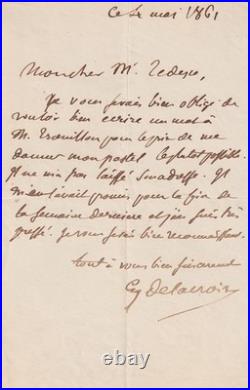 Ce 2 mai 1861
Mon cher Mr. Tedesco,
Je vous serais bien obligé de
vouloir bien ecrire un mot à
M. pour le prier de me
donner mon pastel le plutot possible.
Il ne m'a pas laissé son adresse. Il
m'en avait promis pour la fin de
la semaine derniere et j'en suis très
pressé. Je vous serai bien reconnaissant.
tout à vous bien sincerement
Eug Delacroix